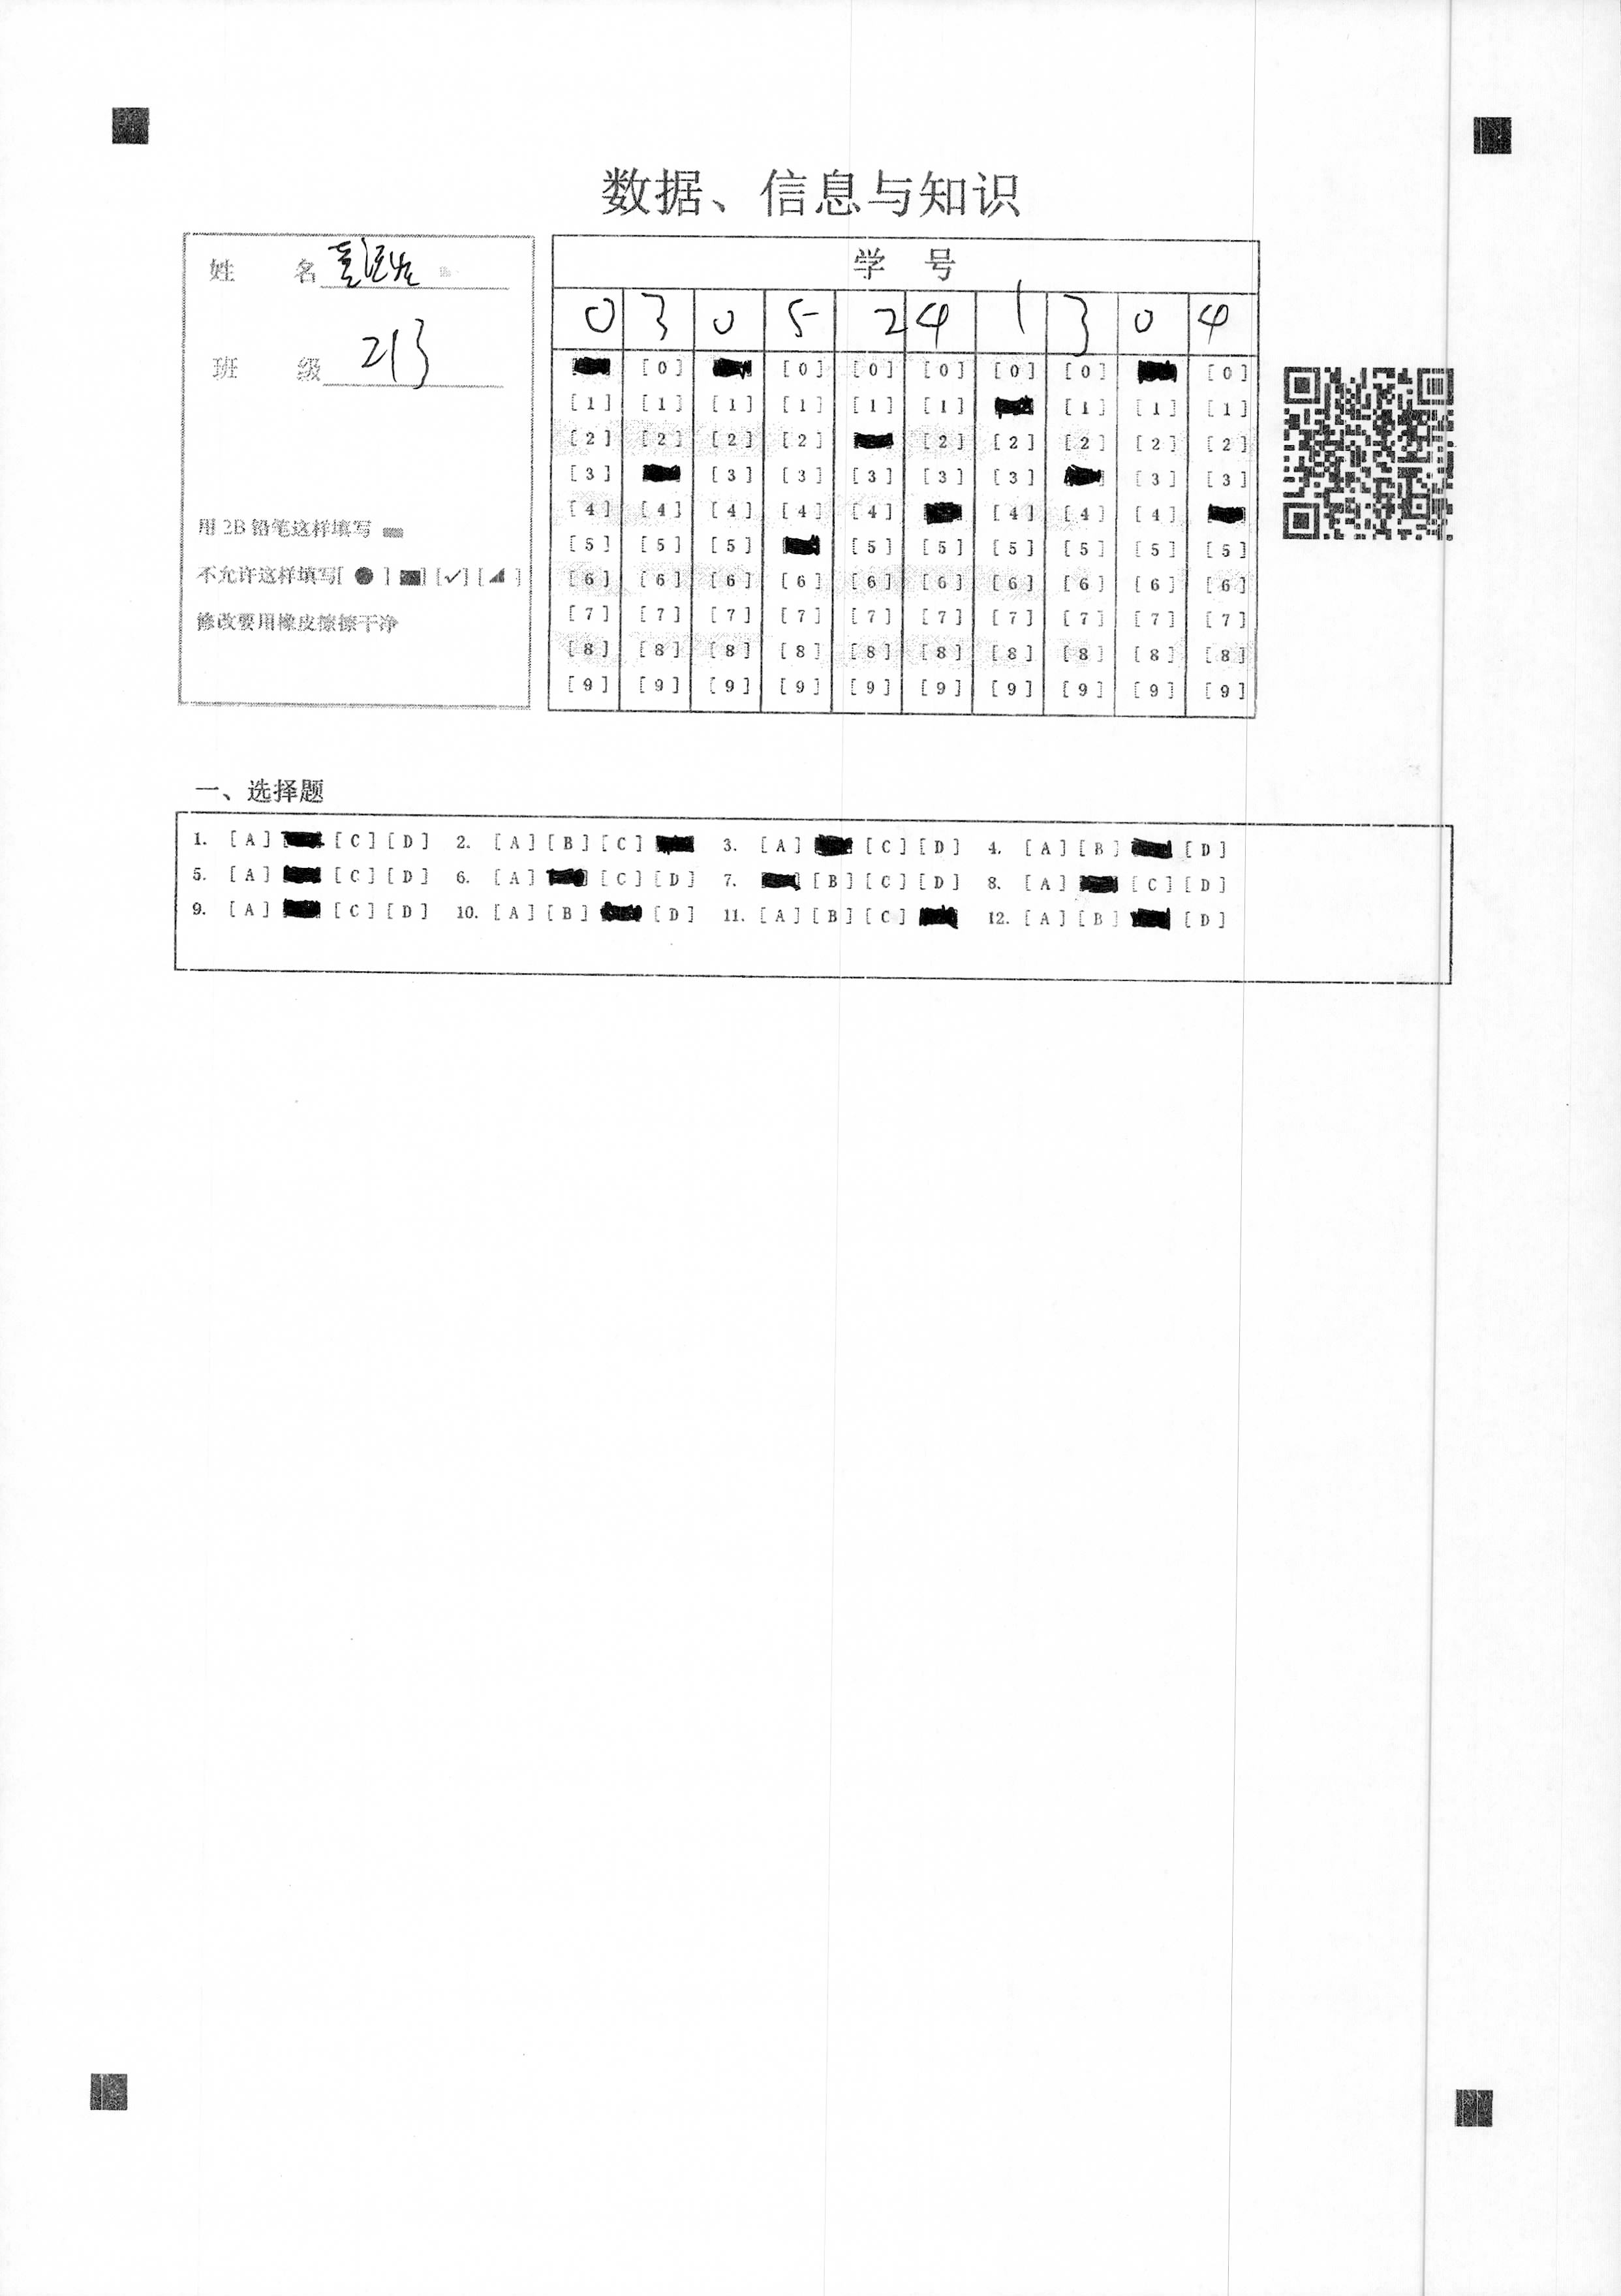 数据、信息与知识
姓 名
班 级 213
用 2B 铅笔这样填写
不允许这样填写[ ● ] [■] [✓] [◢ ]
修改要用橡皮擦擦干净
学 号
0 3 0 5 2 4 1 3 0 4
[0] [0] [0] [0] [0] [0] [0]
[1] [1] [1] [1] [1] [1] [1] [1] [1]
[2] [2] [2] [2] [2] [2] [2] [2] [2]
[3] [3] [3] [3] [3] [3] [3] [3]
[4] [4] [4] [4] [4] [4] [4] [4]
[5] [5] [5] [5] [5] [5] [5] [5] [5]
[6] [6] [6] [6] [6] [6] [6] [6] [6] [6]
[7] [7] [7] [7] [7] [7] [7] [7] [7] [7]
[8] [8] [8] [8] [8] [8] [8] [8] [8] [8]
[9] [9] [9] [9] [9] [9] [9] [9] [9] [9]
一、选择题
1. [A] [C] [D] 2. [A] [B] [C] 3. [A] [C] [D] 4. [A] [B] [D]
5. [A] [C] [D] 6. [A] [C] [D] 7. [B] [C] [D] 8. [A] [C] [D]
9. [A] [C] [D] 10. [A] [B] [D] 11. [A] [B] [C] 12. [A] [B] [D]